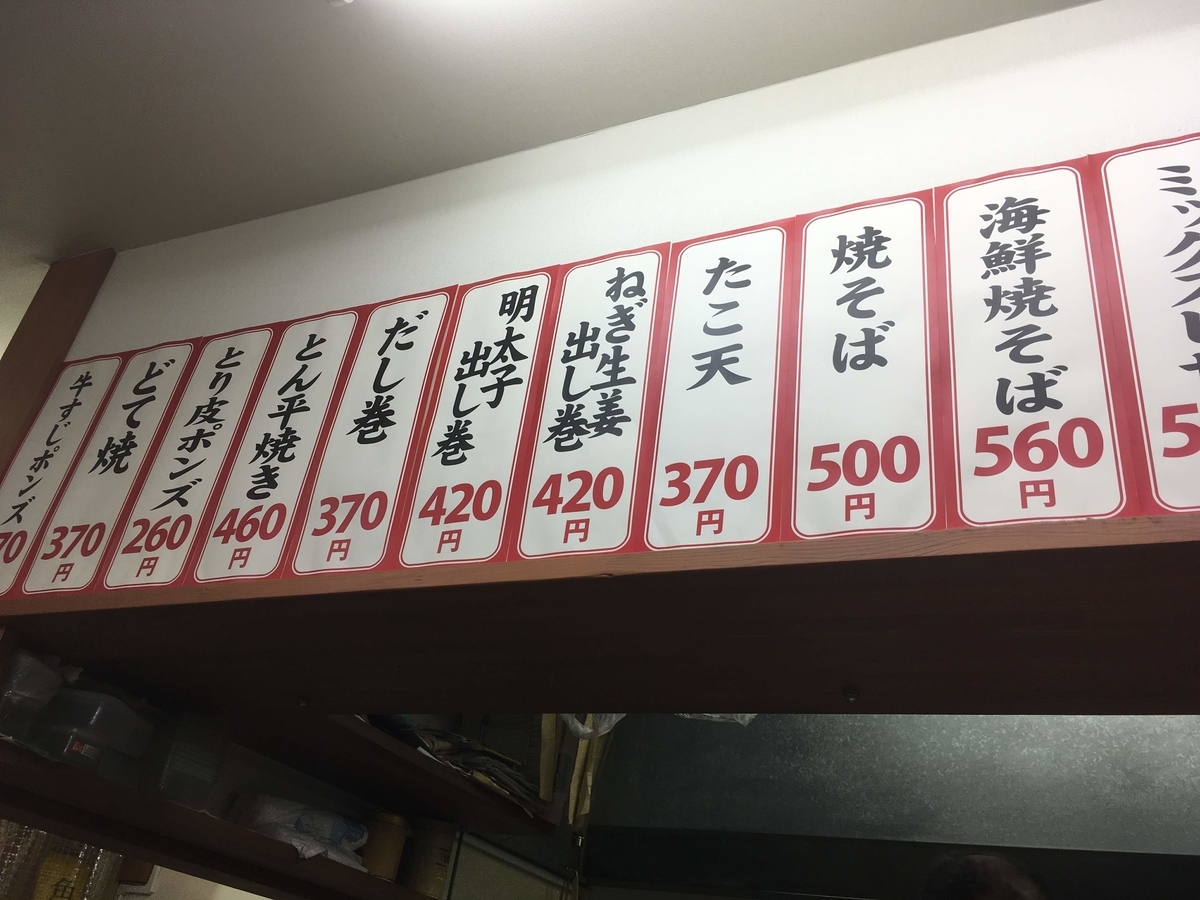 牛すじポンズ
70
どて焼
370
円
とり皮ポンズ
260
円
とん平焼き
460
円
だし巻
370
円
明太子
出し巻
420
円
ねぎ生姜
出し巻
420
円
たこ天
370
円
焼そば
500
円
海鮮焼そば
560
円
ミックス
5
角